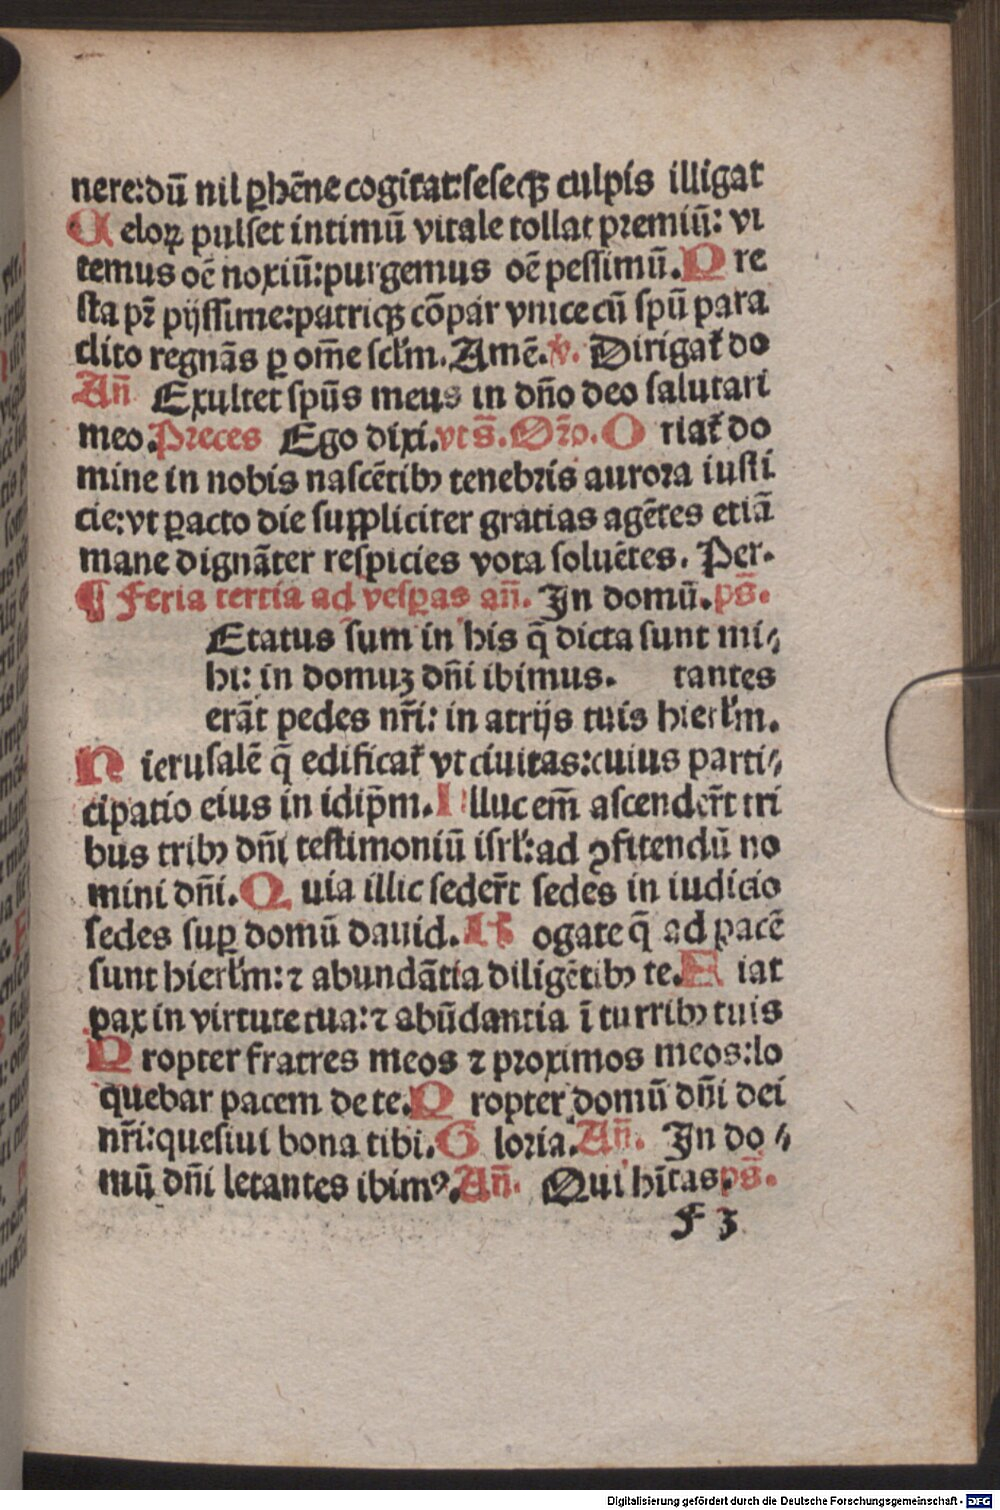 nere:dū nil ꝑhēne cogitat:seseqꝫ culpis illigat
C eloꝝ pulset intimū vitale tollat premiū: vi
temus oē noxiū:purgemus oē pessimū. P re
sta pr̄ pijssime:patriqꝫ cōpar vnice cū spū para
clito regnās ꝑ om̄e scl̄m. Amē. v̄. Dirigat᷑ do
An̄ Exultet spūs meus in dn̄o deo salutari
meo. Preces Ego dixi. vt s̄. Or̄o. O riat᷑ do
mine in nobis nascētibꝫ tenebris aurora iusti
cie:vt ꝑacto die suppliciter gratias agētes etiā
mane dignāter respicies vota soluētes. Per.
¶ Feria tertia ad vesꝑas an̄. In domū. ps̄.
Etatus sum in his q̄ dicta sunt mi⸗
hi: in domuꝫ dn̄i ibimus. tantes
erāt pedes nr̄i: in atrijs tuis hierl̄m.
N ierusalē q̄ edificat᷑ vt ciuitas:cuius parti⸗
cipatio eius in idip̄m. I lluc em̄ ascender̄t tri
bus tribꝫ dn̄i testimoniū isrl̄:ad ꝯfitendū no
mini dn̄i. Q uia illic seder̄t sedes in iudicio
sedes suꝑ domū dauid. R ogate q̄ ad pacē
sunt hierl̄m: ⁊ abundātia diligētibꝫ te. F iat
pax in virtute tua: ⁊ abūdantia ī turribꝫ tuis
P ropter fratres meos ⁊ proximos meos:lo
quebar pacem de te. P ropter domū dn̄i dei
nr̄i:quesiui bona tibi. G loria. An̄. In do⸗
mū dn̄i letantes ibimꝰ. An̄. Qui hītas. ps̄.
F 3
Digitalisierung gefördert durch die Deutsche Forschungsgemeinschaft - DFG